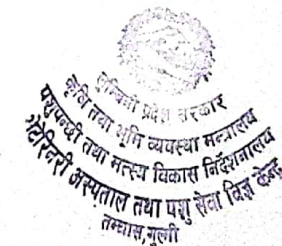 लुम्बिनी प्रदेश सरकार
कृषि तथा भूमि व्यवस्था मन्त्रालय
पशुपन्छी तथा मत्स्य विकास निर्देशनालय
भेटेरिनरी अस्पताल तथा पशु सेवा विज्ञ केन्द्र
तम्घास,गुल्मी